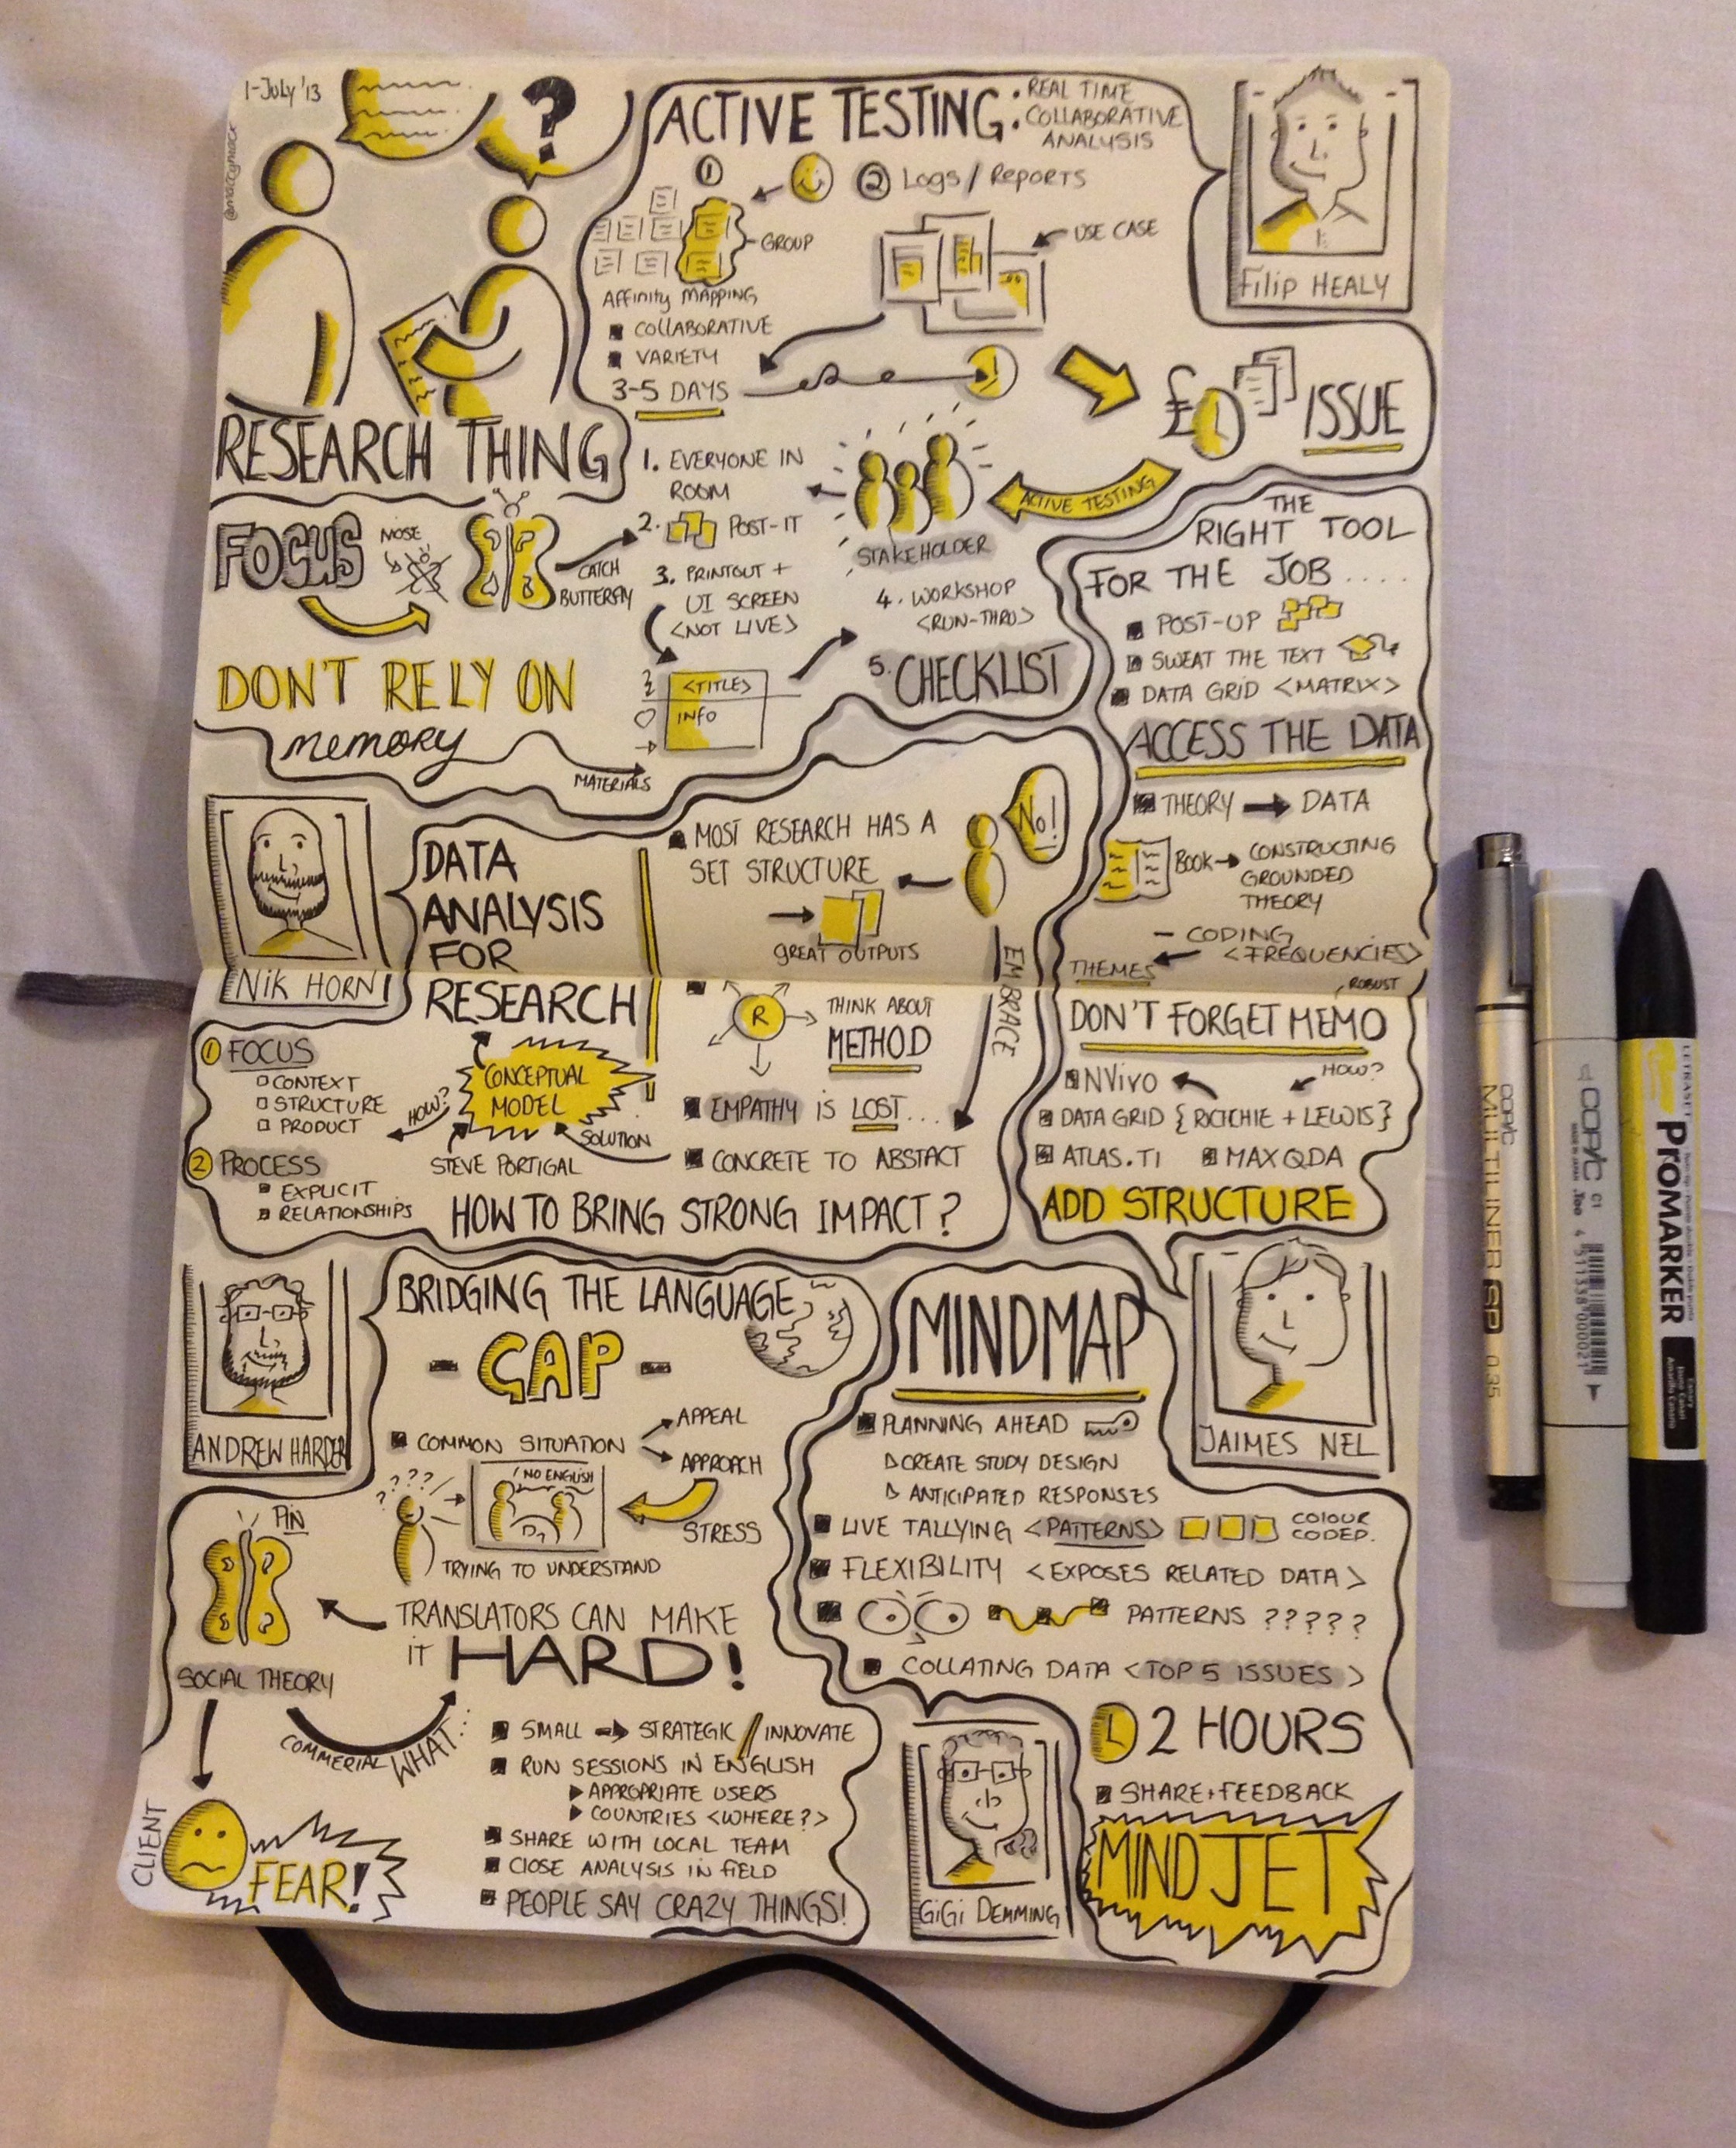 1-July '13
@maccymacx
RESEARCH THING
ACTIVE TESTING:
REAL TIME
COLLABORATIVE
ANALYSIS
Filip HEALY
1
2 Logs / Reports
GROUP
USE CASE
Affinity MAPPING
COLLABORATIVE
VARIETY
3-5 DAYS
£
ISSUE
ACTIVE TESTING
STAKEHOLDER
1. EVERYONE IN
ROOM
2. POST-IT
3. PRINTOUT +
UI SCREEN
<NOT LIVE>
<TITLE>
INFO
MATERIALS
4. WORKSHOP
<RUN-THRU>
5. CHECKLIST
FOCUS
NOSE
CATCH
BUTTERFLY
DON'T RELY ON
memory
THE
RIGHT TOOL
FOR THE JOB....
POST-UP
SWEAT THE TEXT
DATA GRID <MATRIX>
ACCESS THE DATA
THEORY → DATA
BOOK → CONSTRUCTING
GROUNDED
THEORY
- CODING
<FREQUENCIES>
THEMES
ROBUST
DON'T FORGET MEMO
NVivo
HOW?
DATA GRID {RICTCHIE + LEWIS}
ATLAS.TI
MAXQDA
ADD STRUCTURE
JAIMES NEL
NIK HORN
DATA
ANALYSIS
FOR
RESEARCH
MOST RESEARCH HAS A
SET STRUCTURE
NO!
GREAT OUTPUTS
EMBRACE
R
THINK ABOUT
METHOD
EMPATHY IS LOST...
CONCRETE TO ABSTACT
SOLUTION
CONCEPTUAL
MODEL
STEVE PORTIGAL
HOW?
1 FOCUS
CONTEXT
STRUCTURE
PRODUCT
2 PROCESS
EXPLICIT
RELATIONSHIPS
HOW TO BRING STRONG IMPACT?
ANDREW HARDER
BRIDGING THE LANGUAGE
- GAP -
COMMON SITUATION
APPEAL
APPROACH
STRESS
????
NO ENGLISH
TRYING TO UNDERSTAND
TRANSLATORS CAN MAKE
IT HARD!
PIN
SOCIAL THEORY
COMMERIAL WHAT...
CLIENT
FEAR!
SMALL → STRATEGIC / INNOVATE
RUN SESSIONS IN ENGLISH
APPROPRIATE USERS
COUNTRIES <WHERE?>
SHARE WITH LOCAL TEAM
CLOSE ANALYSIS IN FIELD
PEOPLE SAY CRAZY THINGS!
MINDMAP
PLANNING AHEAD
CREATE STUDY DESIGN
ANTICIPATED RESPONSES
LIVE TALLYING <PATTERNS>
COLOUR
CODED.
FLEXIBILITY <EXPOSES RELATED DATA>
PATTERNS ?????
COLLATING DATA <TOP 5 ISSUES>
2 HOURS
SHARE + FEEDBACK
MINDJET
GiGi DEMMING
COPIC
MULTILINER SP 0.35
COPIC
C1
Too
4511338000021
LETRASET
PROMARKER